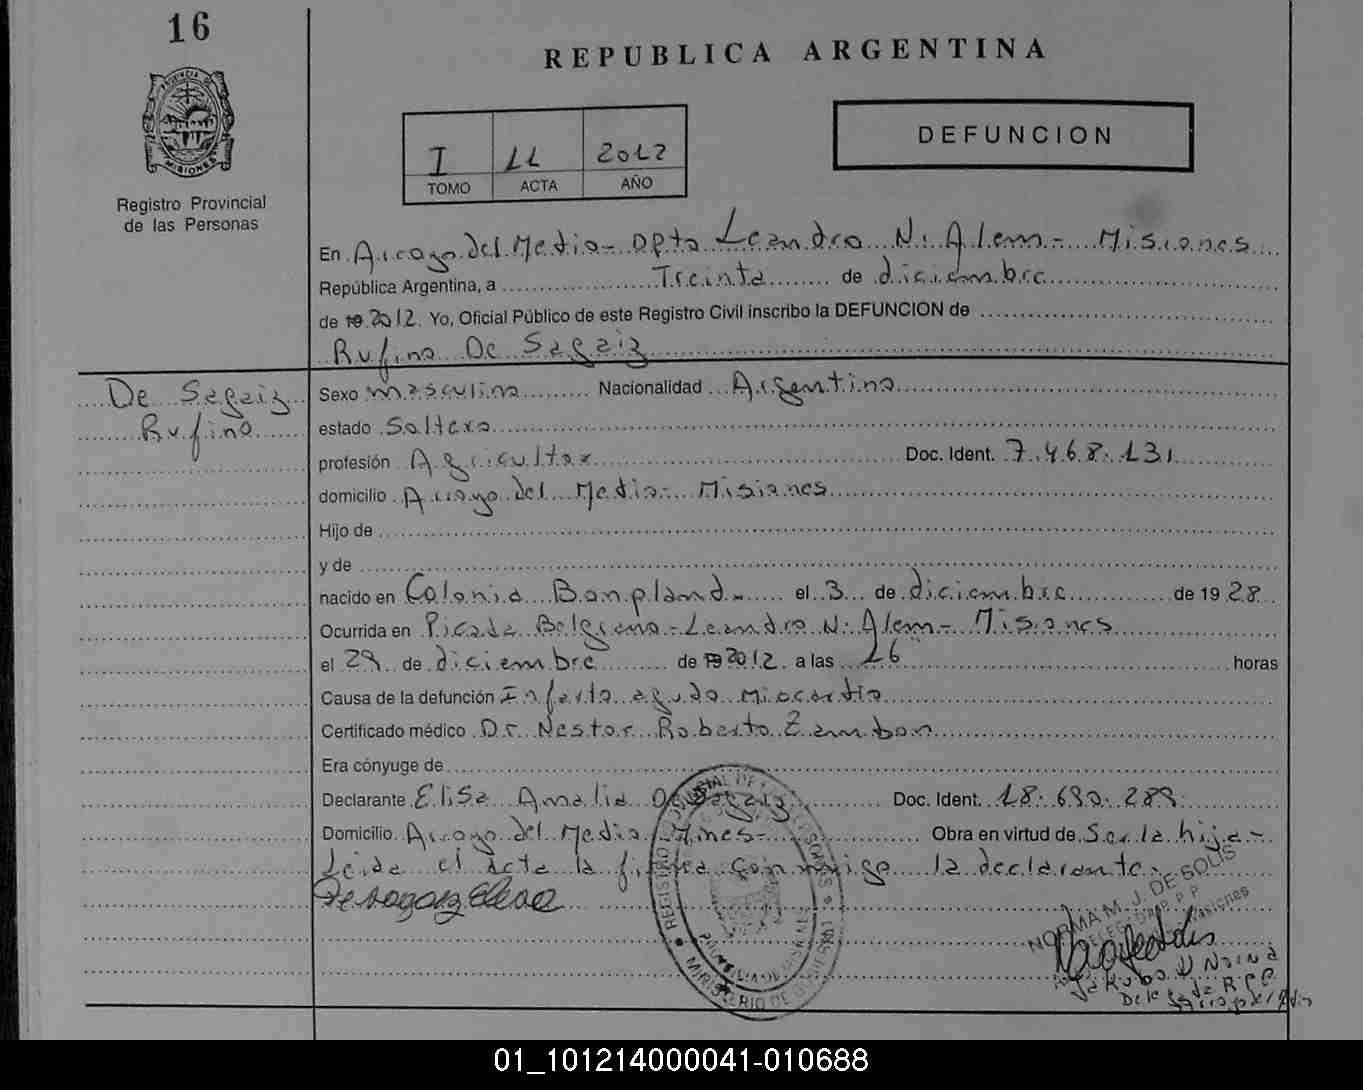 16
REPUBLICA ARGENTINA
PROVINCIA DE
MISIONES
Registro Provincial
de las Personas
I 11 2012
TOMO ACTA AÑO
DEFUNCION
En Arroyo del Medio - Dpto Leandro N. Alem - Misiones
República Argentina, a Treinta de diciembre
de 19 2012. Yo, Oficial Público de este Registro Civil inscribo la DEFUNCION de
Rufino De Sagaiz
De Sagaiz
Rufino
Sexo masculino Nacionalidad Argentino
estado Soltero
profesión Agricultor Doc. Ident. 7.468.131
domicilio Arroyo del Medio - Misiones
Hijo de
y de
nacido en Colonia Bonpland.- el 3 de diciembre de 1928
Ocurrida en Picada Belgrano - Leandro N. Alem - Misiones
el 29 de diciembre de 19 2012 a las 16 horas
Causa de la defunción Infarto agudo miocardio
Certificado médico Dr. Nestor Roberto Zambon
Era cónyuge de
Declarante Elisa Amalia De Sagaiz Doc. Ident. 18.690.289
Domicilio Arroyo del Medio Mnes - Obra en virtud de Ser la hija -
Leida el acta la firma conmigo la declarante.
NORMA M. J. DE SOLIS
Misiones